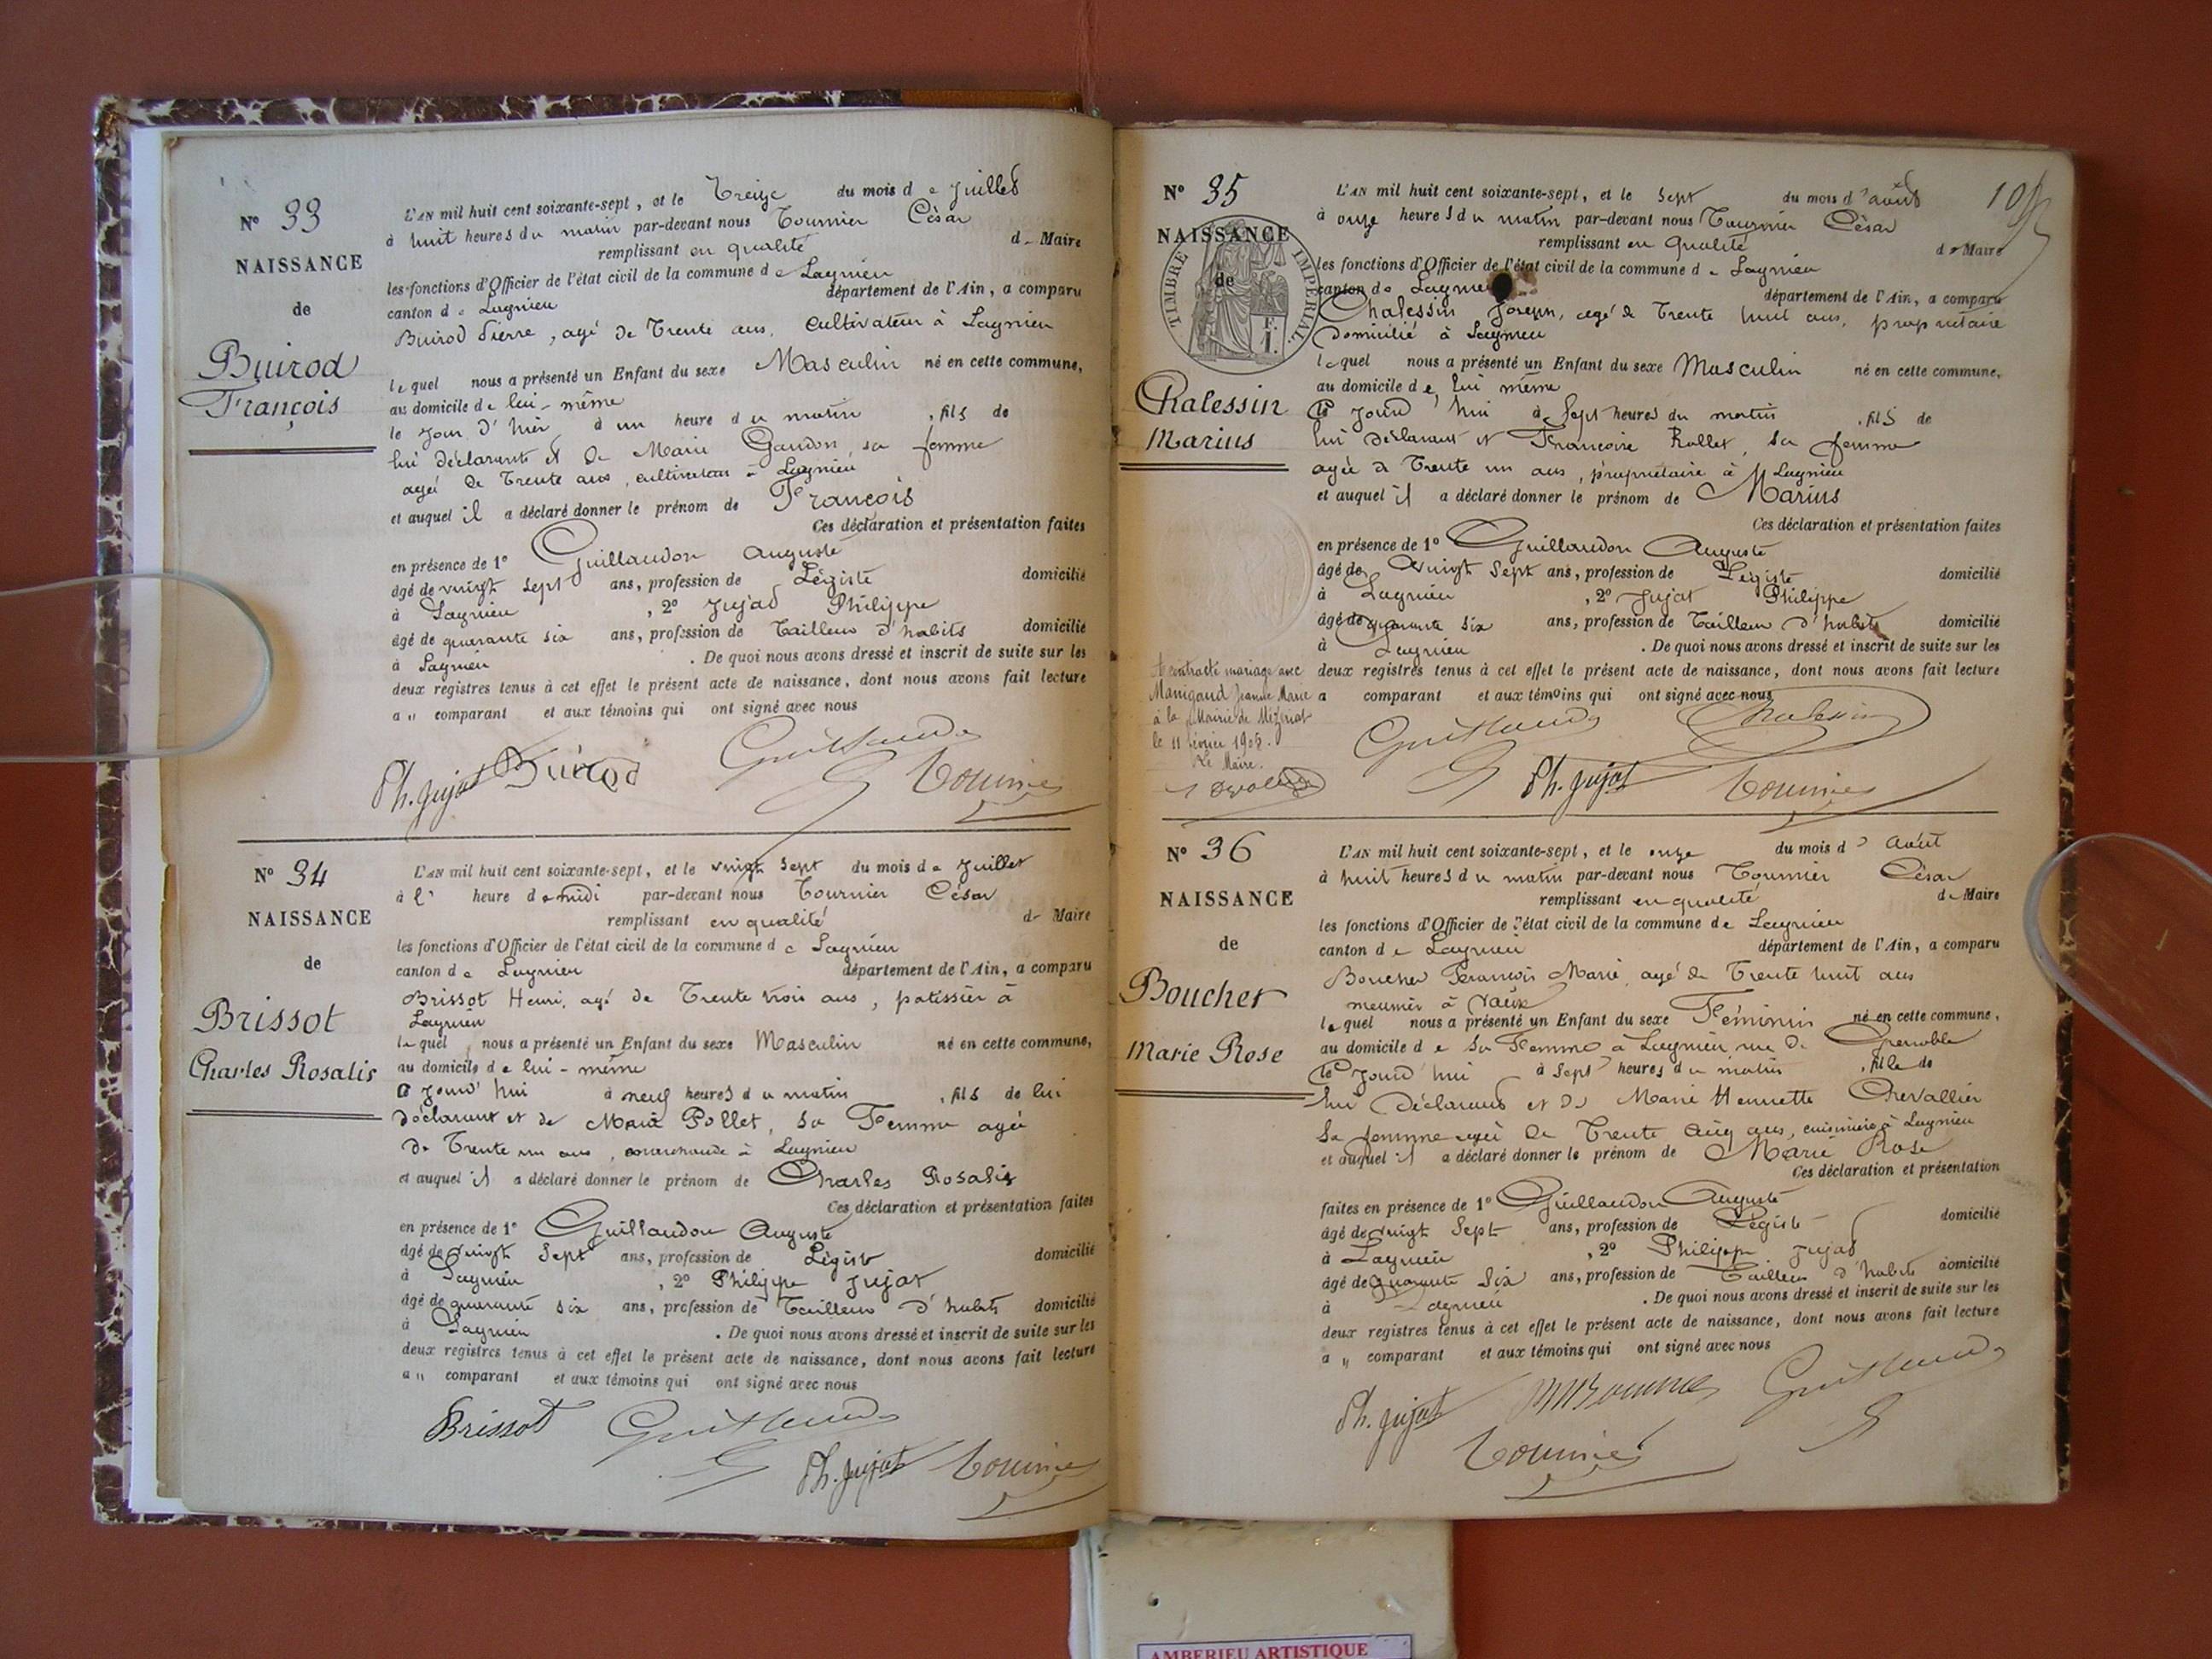 N° 33
NAISSANCE
de
Buirod
François
L'AN mil huit cent soixante-sept, et le Treize du mois de Juillet
à huit heures du matin par-devant nous Tournier César
remplissant en qualité de Maire
les fonctions d'Officier de l'état civil de la commune de Lagnieu
canton de Lagnieu département de l'Ain, a comparu
Buirod Pierre, agé de Trente ans, cultivateur à Lagnieu
lequel nous a présenté un Enfant du sexe Masculin né en cette commune,
au domicile de lui-même
le jour d'hier à un heure du matin, fils de
lui déclarant et de Marie Gandon, sa femme
agée de Trente ans, à Lagnieu
et auquel il a déclaré donner le prénom de François
Ces déclaration et présentation faites
en présence de 1° Guillaudon Auguste
âgé de vuingt sept ans, profession de Légiste domicilié
à Lagnieu, 2° Jujat Philippe
âgé de quarante six ans, profession de Tailleur d'habits domicilié
à Lagnieu. De quoi nous avons dressé et inscrit de suite sur les
deux registres tenus à cet effet le présent acte de naissance, dont nous avons fait lecture
a " comparant et aux témoins qui ont signé avec nous
Ph. Jujat Buirod Tournier
N° 34
NAISSANCE
de
Brissot
Charles Rosalis
L'AN mil huit cent soixante-sept, et le vuingt sept du mois de Juillet
à l' heure de midi par-devant nous Tournier César
remplissant en qualité de Maire
les fonctions d'Officier de l'état civil de la commune de Lagnieu
canton de Lagnieu département de l'Ain, a comparu
Brissot Henri, agé de Trente trois ans, patissier à
Lagnieu
lequel nous a présenté un Enfant du sexe Masculin né en cette commune,
au domicile de lui-même
ce jourd'hui à neuf heures du matin, fils de lui
déclarant et de Marie Pollet, sa Femme agée
de Trente un ans, marchande à Lagnieu
et auquel il a déclaré donner le prénom de Charles Rosalis
Ces déclaration et présentation faites
en présence de 1° Guillaudon Auguste
âgé de vuingt sept ans, profession de Légiste domicilié
à Lagnieu, 2° Philippe Jujat
âgé de quarante six ans, profession de Tailleur d'habits domicilié
à Lagnieu. De quoi nous avons dressé et inscrit de suite sur les
deux registres tenus à cet effet le présent acte de naissance, dont nous avons fait lecture
a " comparant et aux témoins qui ont signé avec nous
Brissot
Ph. Jujat Tournier
N° 35
NAISSANCE
de
TIMBRE IMPÉRIAL
Chalessin
Marius
L'AN mil huit cent soixante-sept, et le sept du mois d'août
à onze heures du matin par-devant nous Tournier César
remplissant en qualité de Maire
les fonctions d'Officier de l'état civil de la commune de Lagnieu
canton de Lagnieu département de l'Ain, a comparu
Chalessin Joseph, agé de Trente huit ans, propriétaire
domicilié à Lagnieu
lequel nous a présenté un Enfant du sexe Masculin né en cette commune,
au domicile de lui même
ce jourd'hui à sept heures du matin, fils de
lui déclarant et Françoise Rollet, sa femme
agée de Trente un ans, propriétaire à Lagnieu
et auquel il a déclaré donner le prénom de Marius
Ces déclaration et présentation faites
en présence de 1° Guillaudon Auguste
âgé de vuingt sept ans, profession de Légiste domicilié
à Lagnieu, 2° Jujat Philippe
âgé de quarante six ans, profession de Tailleur d'habits domicilié
à Lagnieu. De quoi nous avons dressé et inscrit de suite sur les
deux registres tenus à cet effet le présent acte de naissance, dont nous avons fait lecture
a comparant et aux témoins qui ont signé avec nous
A contracté mariage avec
Manigand Jeanne Marie
à la Mairie de Mézériat
le 11 février
Le Maire.
Chalessin
Ph. Jujat Tournier
N° 36
NAISSANCE
de
Boucher
Marie Rose
L'AN mil huit cent soixante-sept, et le onze du mois d'Août
à huit heures du matin par-devant nous Tournier César
remplissant en qualité de Maire
les fonctions d'Officier de l'état civil de la commune de Lagnieu
canton de Lagnieu département de l'Ain, a comparu
Boucher François Marie, agé de Trente huit ans
meunier à Vaux
lequel nous a présenté un Enfant du sexe Féminin né en cette commune,
au domicile de sa Femme à Lagnieu, rue de Grenoble
ce jourd'hui à sept heures du matin, fille de
lui déclarant et de Marie Henriette Chevallier
sa femme agée de Trente cinq ans, cuisinière à Lagnieu
et auquel il a déclaré donner le prénom de Marie Rose
Ces déclaration et présentation
faites en présence de 1° Guillaudon Auguste
âgé de vuingt sept ans, profession de Légiste domicilié
à Lagnieu, 2° Philippe Jujat
âgé de quarante six ans, profession de Tailleur d'habits domicilié
à Lagnieu. De quoi nous avons dressé et inscrit de suite sur les
deux registres tenus à cet effet le présent acte de naissance, dont nous avons fait lecture
a " comparant et aux témoins qui ont signé avec nous
Ph. Jujat
Tournier
AMBERIEU ARTISTIQUE